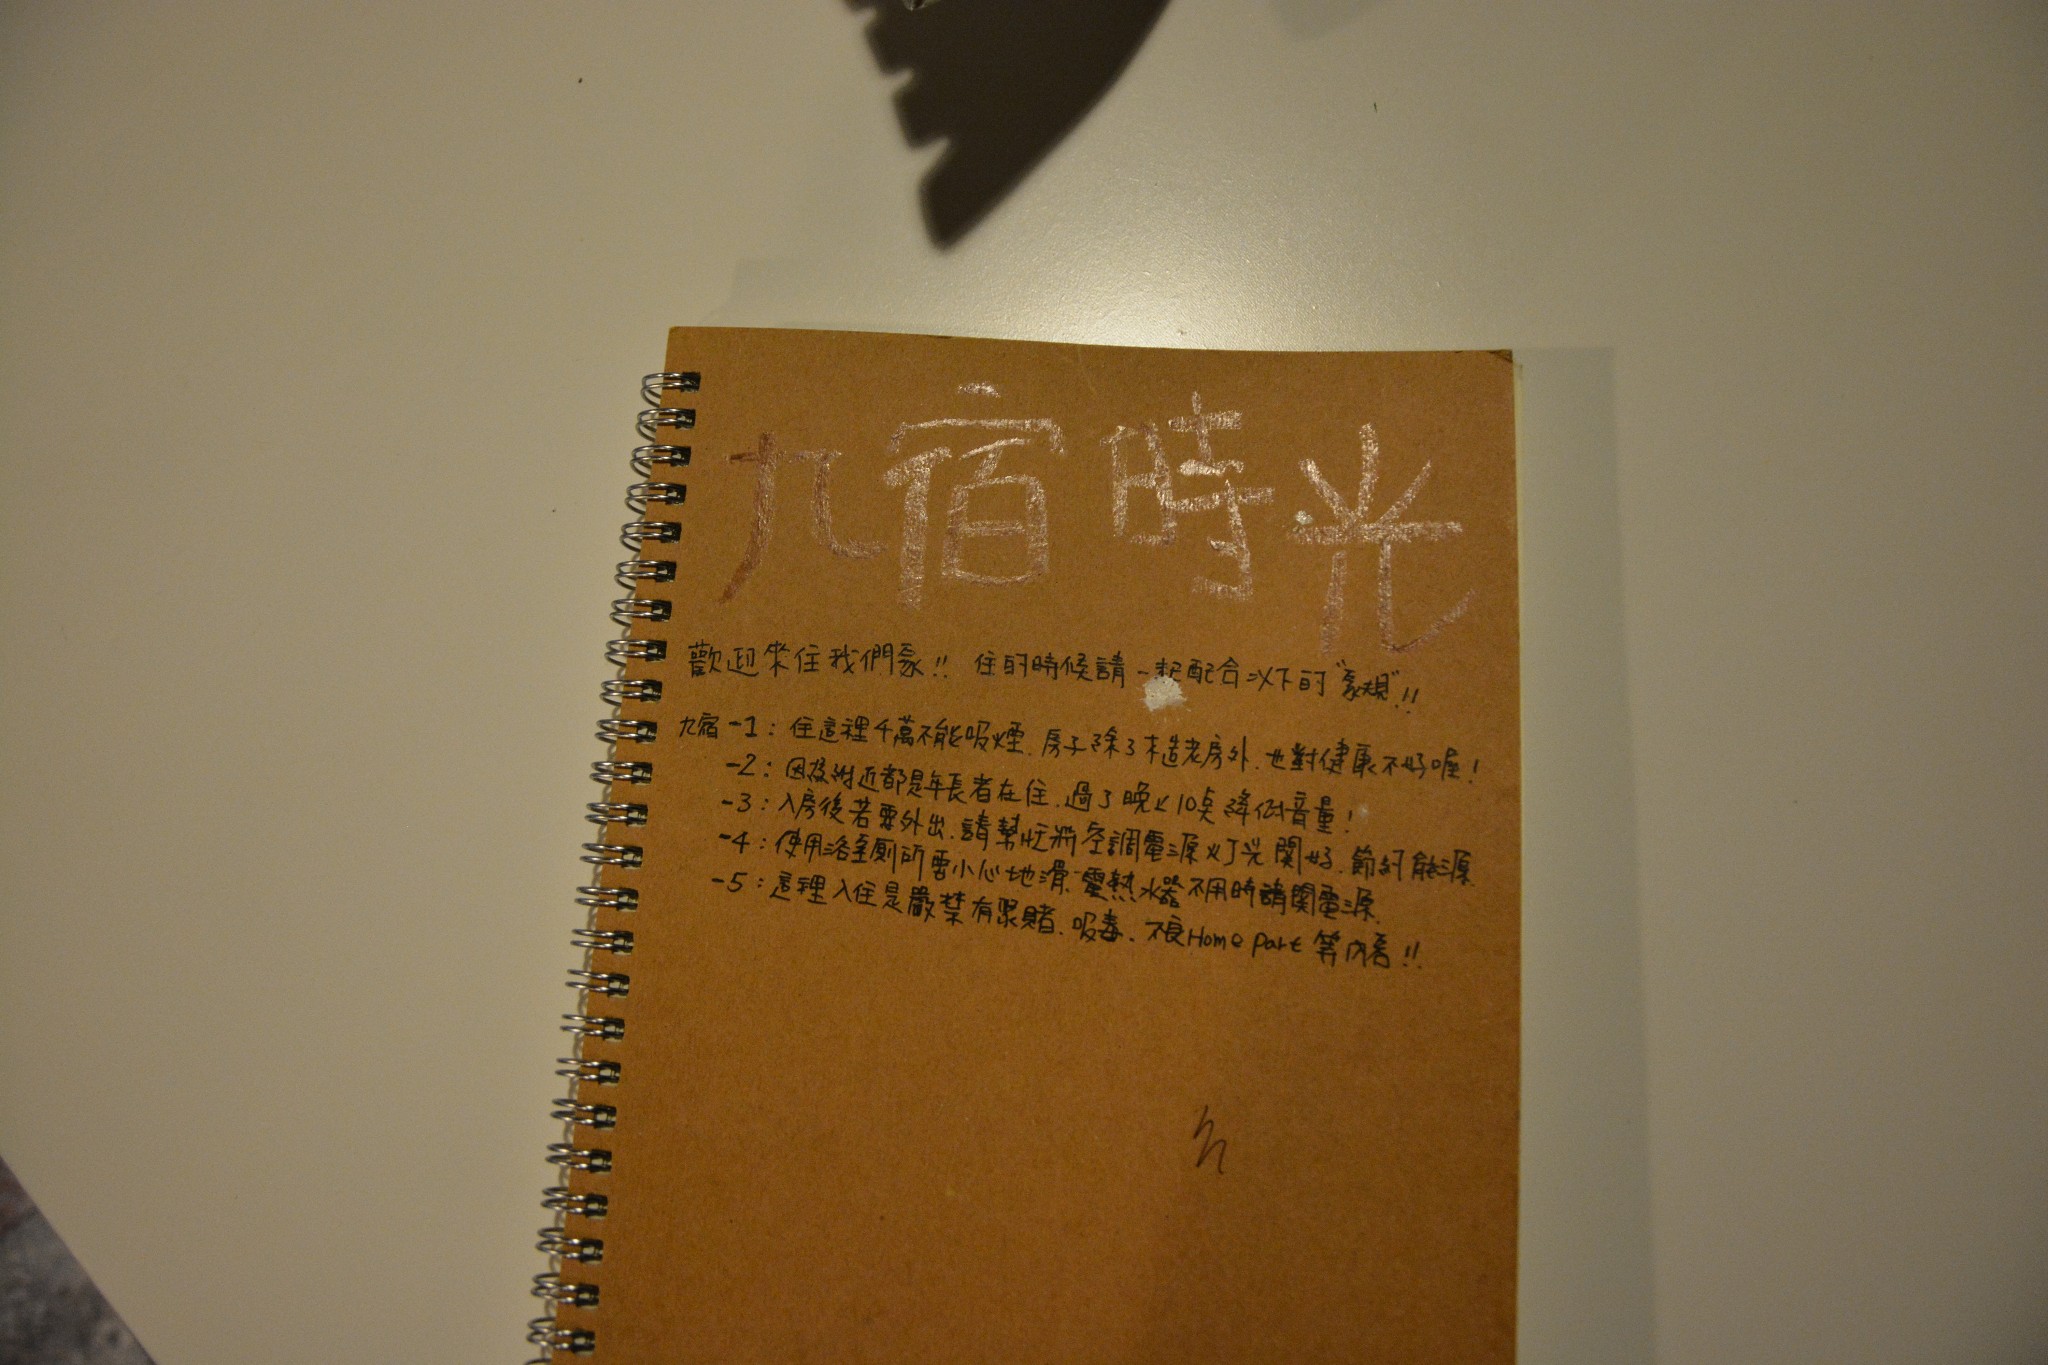 九宿時光
歡迎來住我們家!! 住的時候請一起配合以下的"家規"!!
九宿-1：住這裡千萬不能吸煙、房子除了木造老房外、也對健康不好喔！
-2：因後附近都是年長者在住、過了晚上10点降低音量！
-3：入房後若要外出、請幫忙將空調電源火丁光關好、節約能源、
-4：使用浴室廁所要小心地滑、電熱水器不用時請關電源、
-5：這裡入住是嚴禁有聚賭、吸毒、不良Home Part 等內容!!